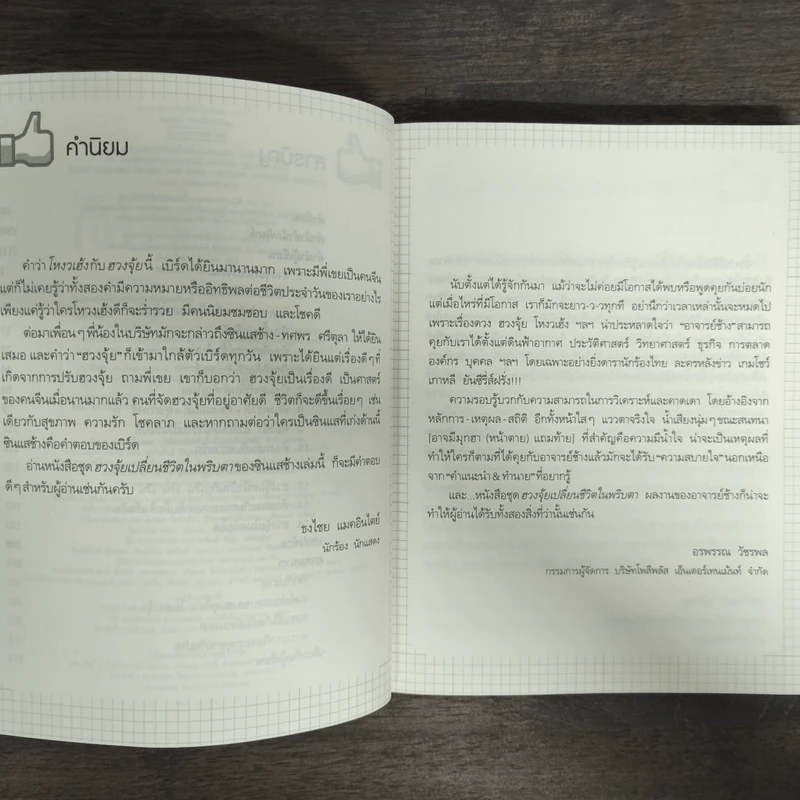 คำนิยม
คำว่า โหงวเฮ้ง กับ ฮวงจุ้ย นี้ เบิร์ดได้ยินมานานมาก เพราะมีพี่เขยเป็นคนจีน
แต่ก็ไม่เคยรู้ว่าทั้งสองคำมีความหมายหรืออิทธิพลต่อชีวิตประจำวันของเราอย่างไร
เพียงแค่รู้ว่าใครโหงวเฮ้งดีก็จะร่ำรวย มีคนนิยมชมชอบ และโชคดี
ต่อมาเพื่อนๆ พี่น้องในบริษัทมักจะกล่าวถึงซินแสช้าง - ทศพร ศรีตุลา ให้ได้ยิน
เสมอ และคำว่า “ฮวงจุ้ย” ก็เข้ามาใกล้ตัวเบิร์ดทุกวัน เพราะได้ยินแต่เรื่องดีๆ ที่
เกิดจากการปรับฮวงจุ้ย ถามพี่เขย เขาก็บอกว่า ฮวงจุ้ยเป็นเรื่องดี เป็นศาสตร์
ของคนจีนเมื่อนานมากแล้ว คนที่จัดฮวงจุ้ยที่อยู่อาศัยดี ชีวิตก็จะดีขึ้นเรื่อยๆ เช่น
เดียวกับสุขภาพ ความรัก โชคลาภ และหากถามต่อว่าใครเป็นซินแสที่เก่งด้านนี้
ซินแสช้างคือคำตอบของเบิร์ด
อ่านหนังสือชุด ฮวงจุ้ยเปลี่ยนชีวิตในพริบตา ของซินแสช้างเล่มนี้ ก็จะมีคำตอบ
ดีๆ สำหรับผู้อ่านเช่นกันครับ
ธงไชย แมคอินไตย์
นักร้อง นักแสดง
นับตั้งแต่ได้รู้จักกันมา แม้ว่าจะไม่ค่อยมีโอกาสได้พบหรือพูดคุยกันบ่อยนัก
แต่เมื่อไหร่ที่มีโอกาส เราก็มักจะยาว-ว-วทุกที อย่านึกว่าเวลาเหล่านั้นจะหมดไป
เพราะเรื่องดวง ฮวงจุ้ย โหงวเฮ้ง ฯลฯ น่าประหลาดใจว่า “อาจารย์ช้าง” สามารถ
คุยกับเราได้ตั้งแต่ดินฟ้าอากาศ ประวัติศาสตร์ วิทยาศาสตร์ ธุรกิจ การตลาด
องค์กร บุคคล ฯลฯ โดยเฉพาะอย่างยิ่งดารานักร้องไทย ละครหลังข่าว เกมโชว์
เกาหลี ยันซีรี่ส์ฝรั่ง!!!
ความรอบรู้บวกกับความสามารถในการวิเคราะห์และคาดเดา โดยอ้างอิงจาก
หลักการ - เหตุผล - สถิติ อีกทั้งหน้าใสๆ แววตาจริงใจ น้ำเสียงนุ่มๆ ขณะสนทนา
[อาจมีมุกฮา (หน้าตาย) แถมท้าย] ที่สำคัญคือความมีน้ำใจ น่าจะเป็นเหตุผลที่
ทำให้ใครก็ตามที่ได้คุยกับอาจารย์ช้างแล้วมักจะได้รับ “ความสบายใจ” นอกเหนือ
จาก “คำแนะนำ & ทำนาย” ที่อยากรู้
และ...หนังสือชุด ฮวงจุ้ยเปลี่ยนชีวิตในพริบตา ผลงานของอาจารย์ช้างก็น่าจะ
ทำให้ผู้อ่านได้รับทั้งสองสิ่งที่ว่านั้นเช่นกัน
อรพรรณ วัชรพล
กรรมการผู้จัดการ บริษัทโพลีพลัส เอ็นเตอร์เทนเม้นท์ จำกัด